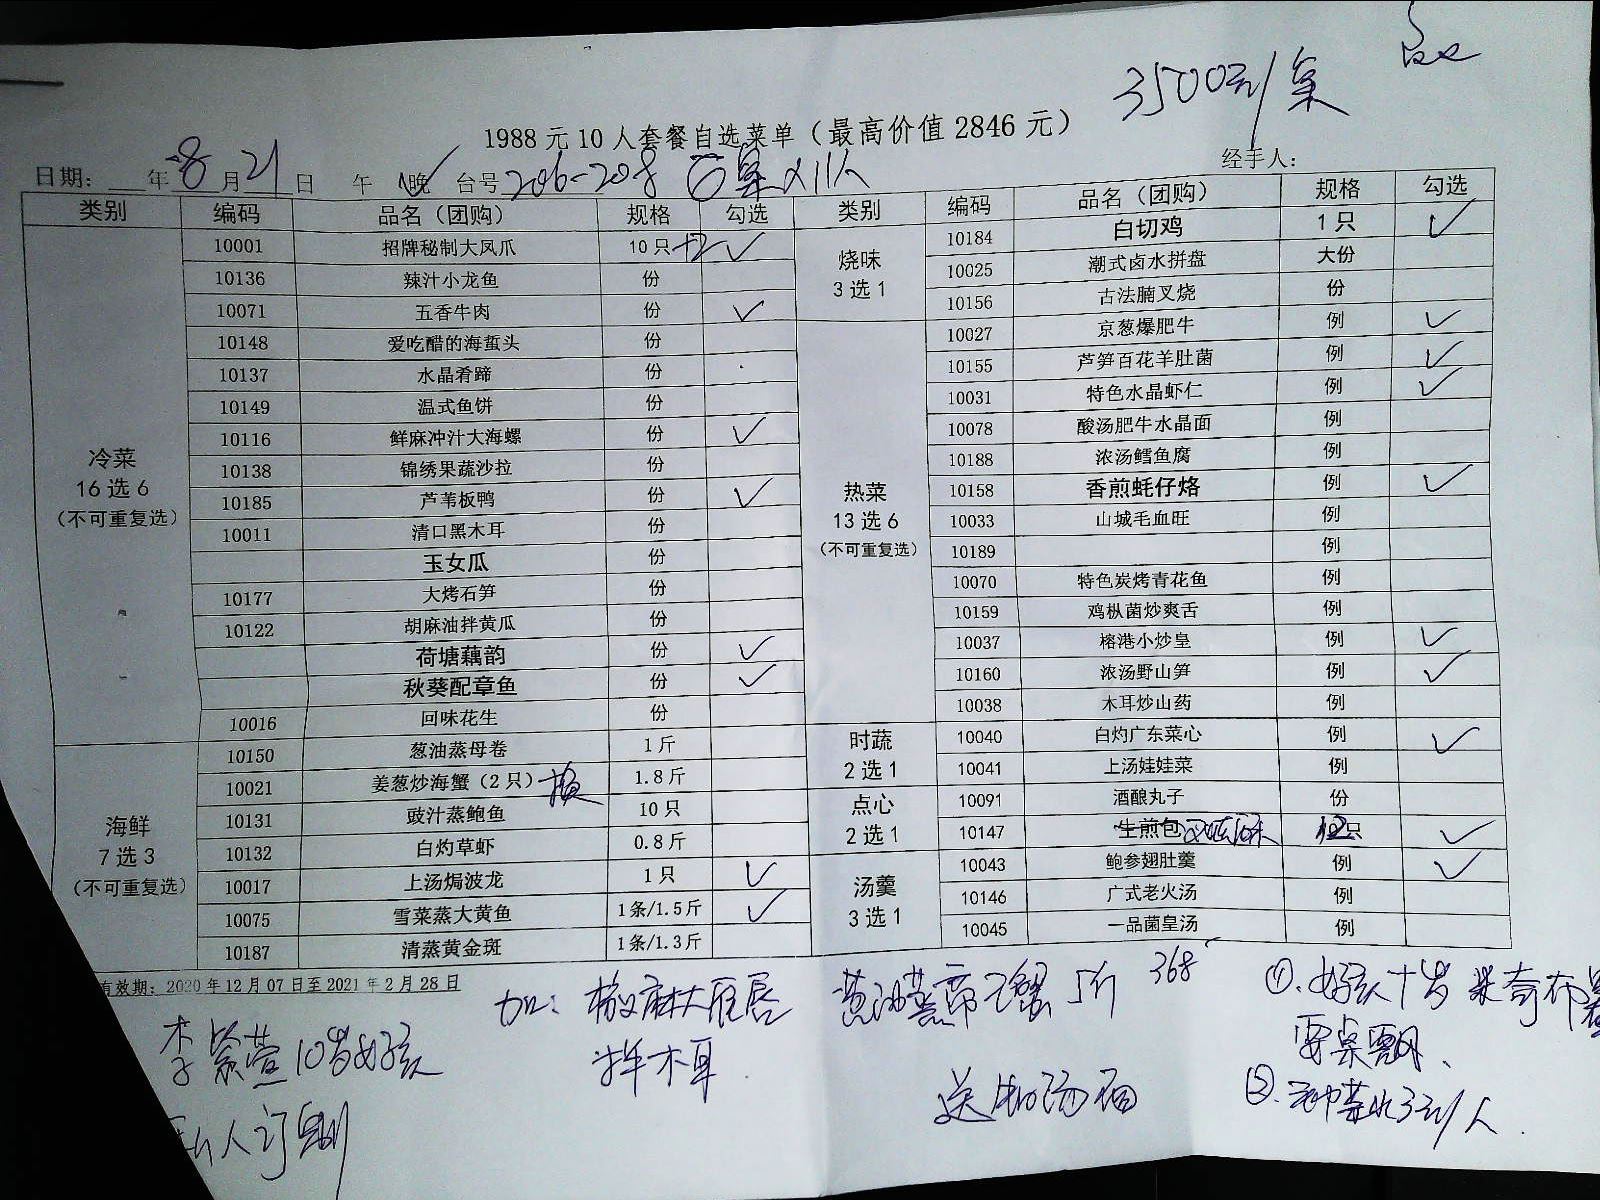 3500元/桌
1988 元 10 人套餐自选菜单（最高价值 2846 元）
日期： 年 8 月 21 日 午 晚 ✓ 台号 206-208 桌×11人 经手人：
类别 编码 品名（团购） 规格 勾选
冷菜
16 选 6
（不可重复选）
10001 招牌秘制大凤爪 10 只 +2 ✓
10136 辣汁小龙鱼 份
10071 五香牛肉 份 ✓
10148 爱吃醋的海蜇头 份
10137 水晶肴蹄 份
10149 温式鱼饼 份
10116 鲜麻冲汁大海螺 份 ✓
10138 锦绣果蔬沙拉 份
10185 芦苇板鸭 份 ✓
10011 清口黑木耳 份
玉女瓜 份
10177 大烤石笋 份
10122 胡麻油拌黄瓜 份
荷塘藕韵 份 ✓
秋葵配章鱼 份 ✓
10016 回味花生 份
海鲜
7 选 3
（不可重复选）
10150 葱油蒸母卷 1 斤
10021 姜葱炒海蟹（2 只） 换 1.8 斤
10131 豉汁蒸鲍鱼 10 只
10132 白灼草虾 0.8 斤
10017 上汤焗波龙 1 只 ✓
10075 雪菜蒸大黄鱼 1条/1.5斤 ✓
10187 清蒸黄金斑 1条/1.3斤
类别 编码 品名（团购） 规格 勾选
烧味
3 选 1
10184 白切鸡 1 只 ✓
10025 潮式卤水拼盘 大份
10156 古法腩叉烧 份
热菜
13 选 6
（不可重复选）
10027 京葱爆肥牛 例 ✓
10155 芦笋百花羊肚菌 例 ✓
10031 特色水晶虾仁 例 ✓
10078 酸汤肥牛水晶面 例
10188 浓汤鳕鱼腐 例
10158 香煎蚝仔烙 例 ✓
10033 山城毛血旺 例
10189 例
10070 特色炭烤青花鱼 例
10159 鸡枞菌炒爽舌 例
10037 榕港小炒皇 例 ✓
10160 浓汤野山笋 例 ✓
10038 木耳炒山药 例
时蔬
2 选 1
10040 白灼广东菜心 例 ✓
10041 上汤娃娃菜 例
点心
2 选 1
10091 酒酿丸子 份
10147 生煎包 12只 ✓
汤羹
3 选 1
10043 鲍参翅肚羹 例 ✓
10146 广式老火汤 例
10045 一品菌皇汤 例
有效期：2020 年 12 月 07 日至 2021 年 2 月 28 日
加：椒麻大雁唇 黄油蒸帝王蟹 5斤 368
拌木耳
送 汤面
李紫萱 10岁女孩
私人订制
①. 女孩十岁 米奇布
要桌飘、
②. 茶水3元/人.